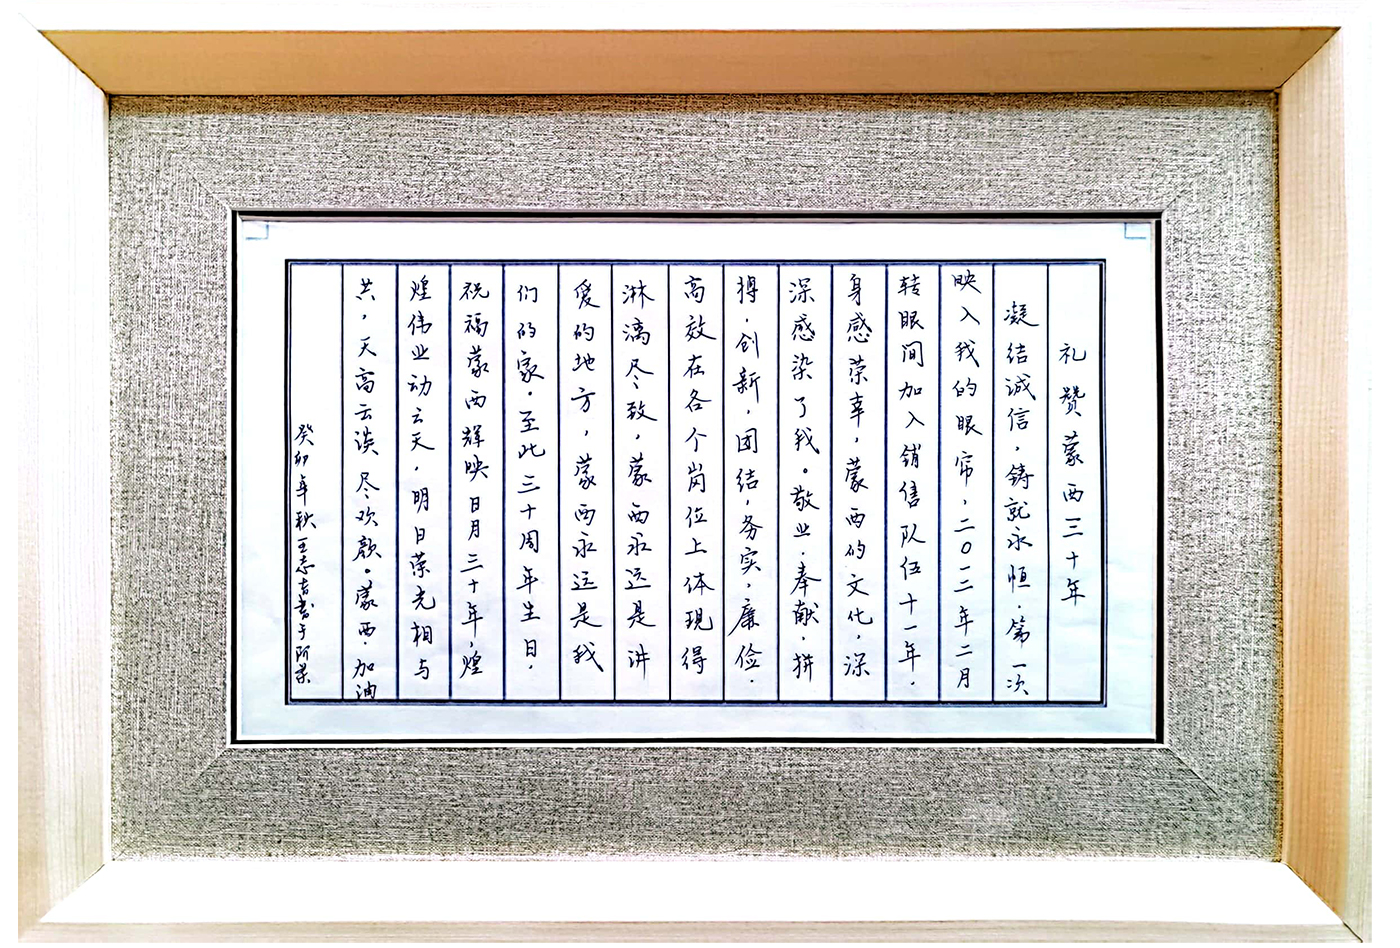 礼赞蒙西三十年
凝结诚信，铸就永恒．第一次
映入我的眼帘，二〇一二年二月
转眼间加入销售队伍十一年．
身感荣幸，蒙西的文化，深
深感染了我。敬业．奉献．拼
搏．创新，团结，务实，廉俭．
高效在各个岗位上体现得
淋漓尽致，蒙西永远是讲
爱的地方，蒙西永远是我
们的家．至此三十周年生日．
祝福蒙西辉映日月三十年，煌
煌伟业动云天．明日荣光相与
共，天高云淡尽欢颜。蒙西．加油
癸卯年秋王志吉书于阿荣